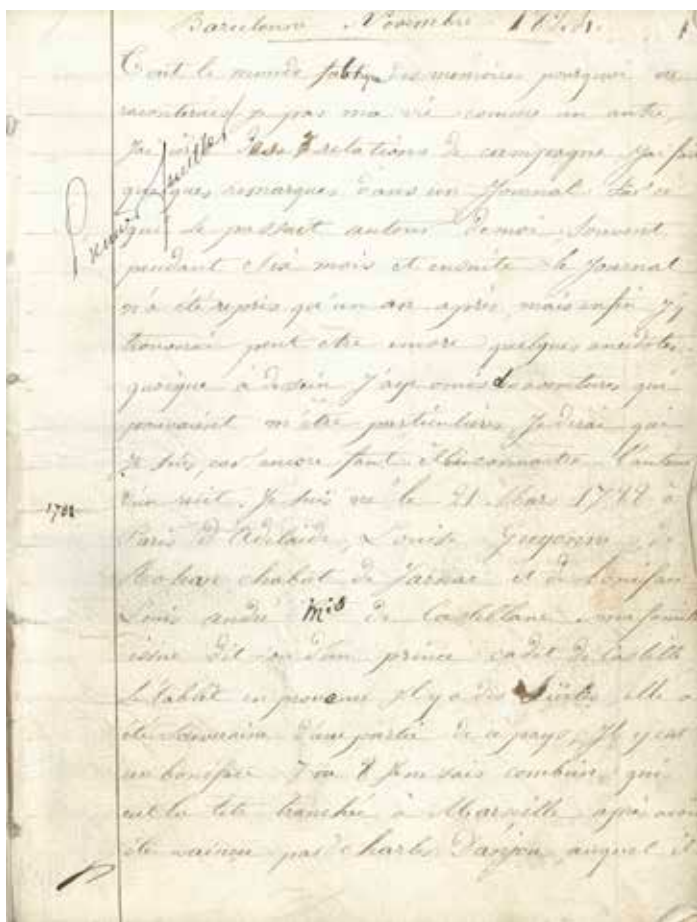 Barcelonne Novembre
Tout le monde fabrique des memoires pourquoi ne
raconterais je pas ma vie comme un autre
J'ai relations de campagne j'ai fait
quelques remarques dans un Journal sur ce
qui se passait autour de moi, souvent
pendant six mois et ensuite le Journal
n'a été repris qu'un an après, mais enfin j'y
trouverai peut etre encore quelques anecdotes
quoique à dessein J'aye omis d'aventures qui
pouvaient m'être particulières, Je dirai qui
Je suis, car encore faut il connaitre l'auteur
d'un recit. Je suis né le 21 Mars 1788 à
1788
Paris d'Adelaide, Louise de
Rohan chabot de Jarnac et de Bonifan
Louis andré Mis de Castellane ma famille
issue dit on d'un prince cadet de Castille
S'etablit en provence Il y a des Siècles elle a
été Souveraine d'une partie de ce pays, Il y eut
un boniface 7 ou 8 je ne sais combien, qui
eut la tete tranchée à Marseille après avoir
été vaincu par Charles D'anjou, auquel il